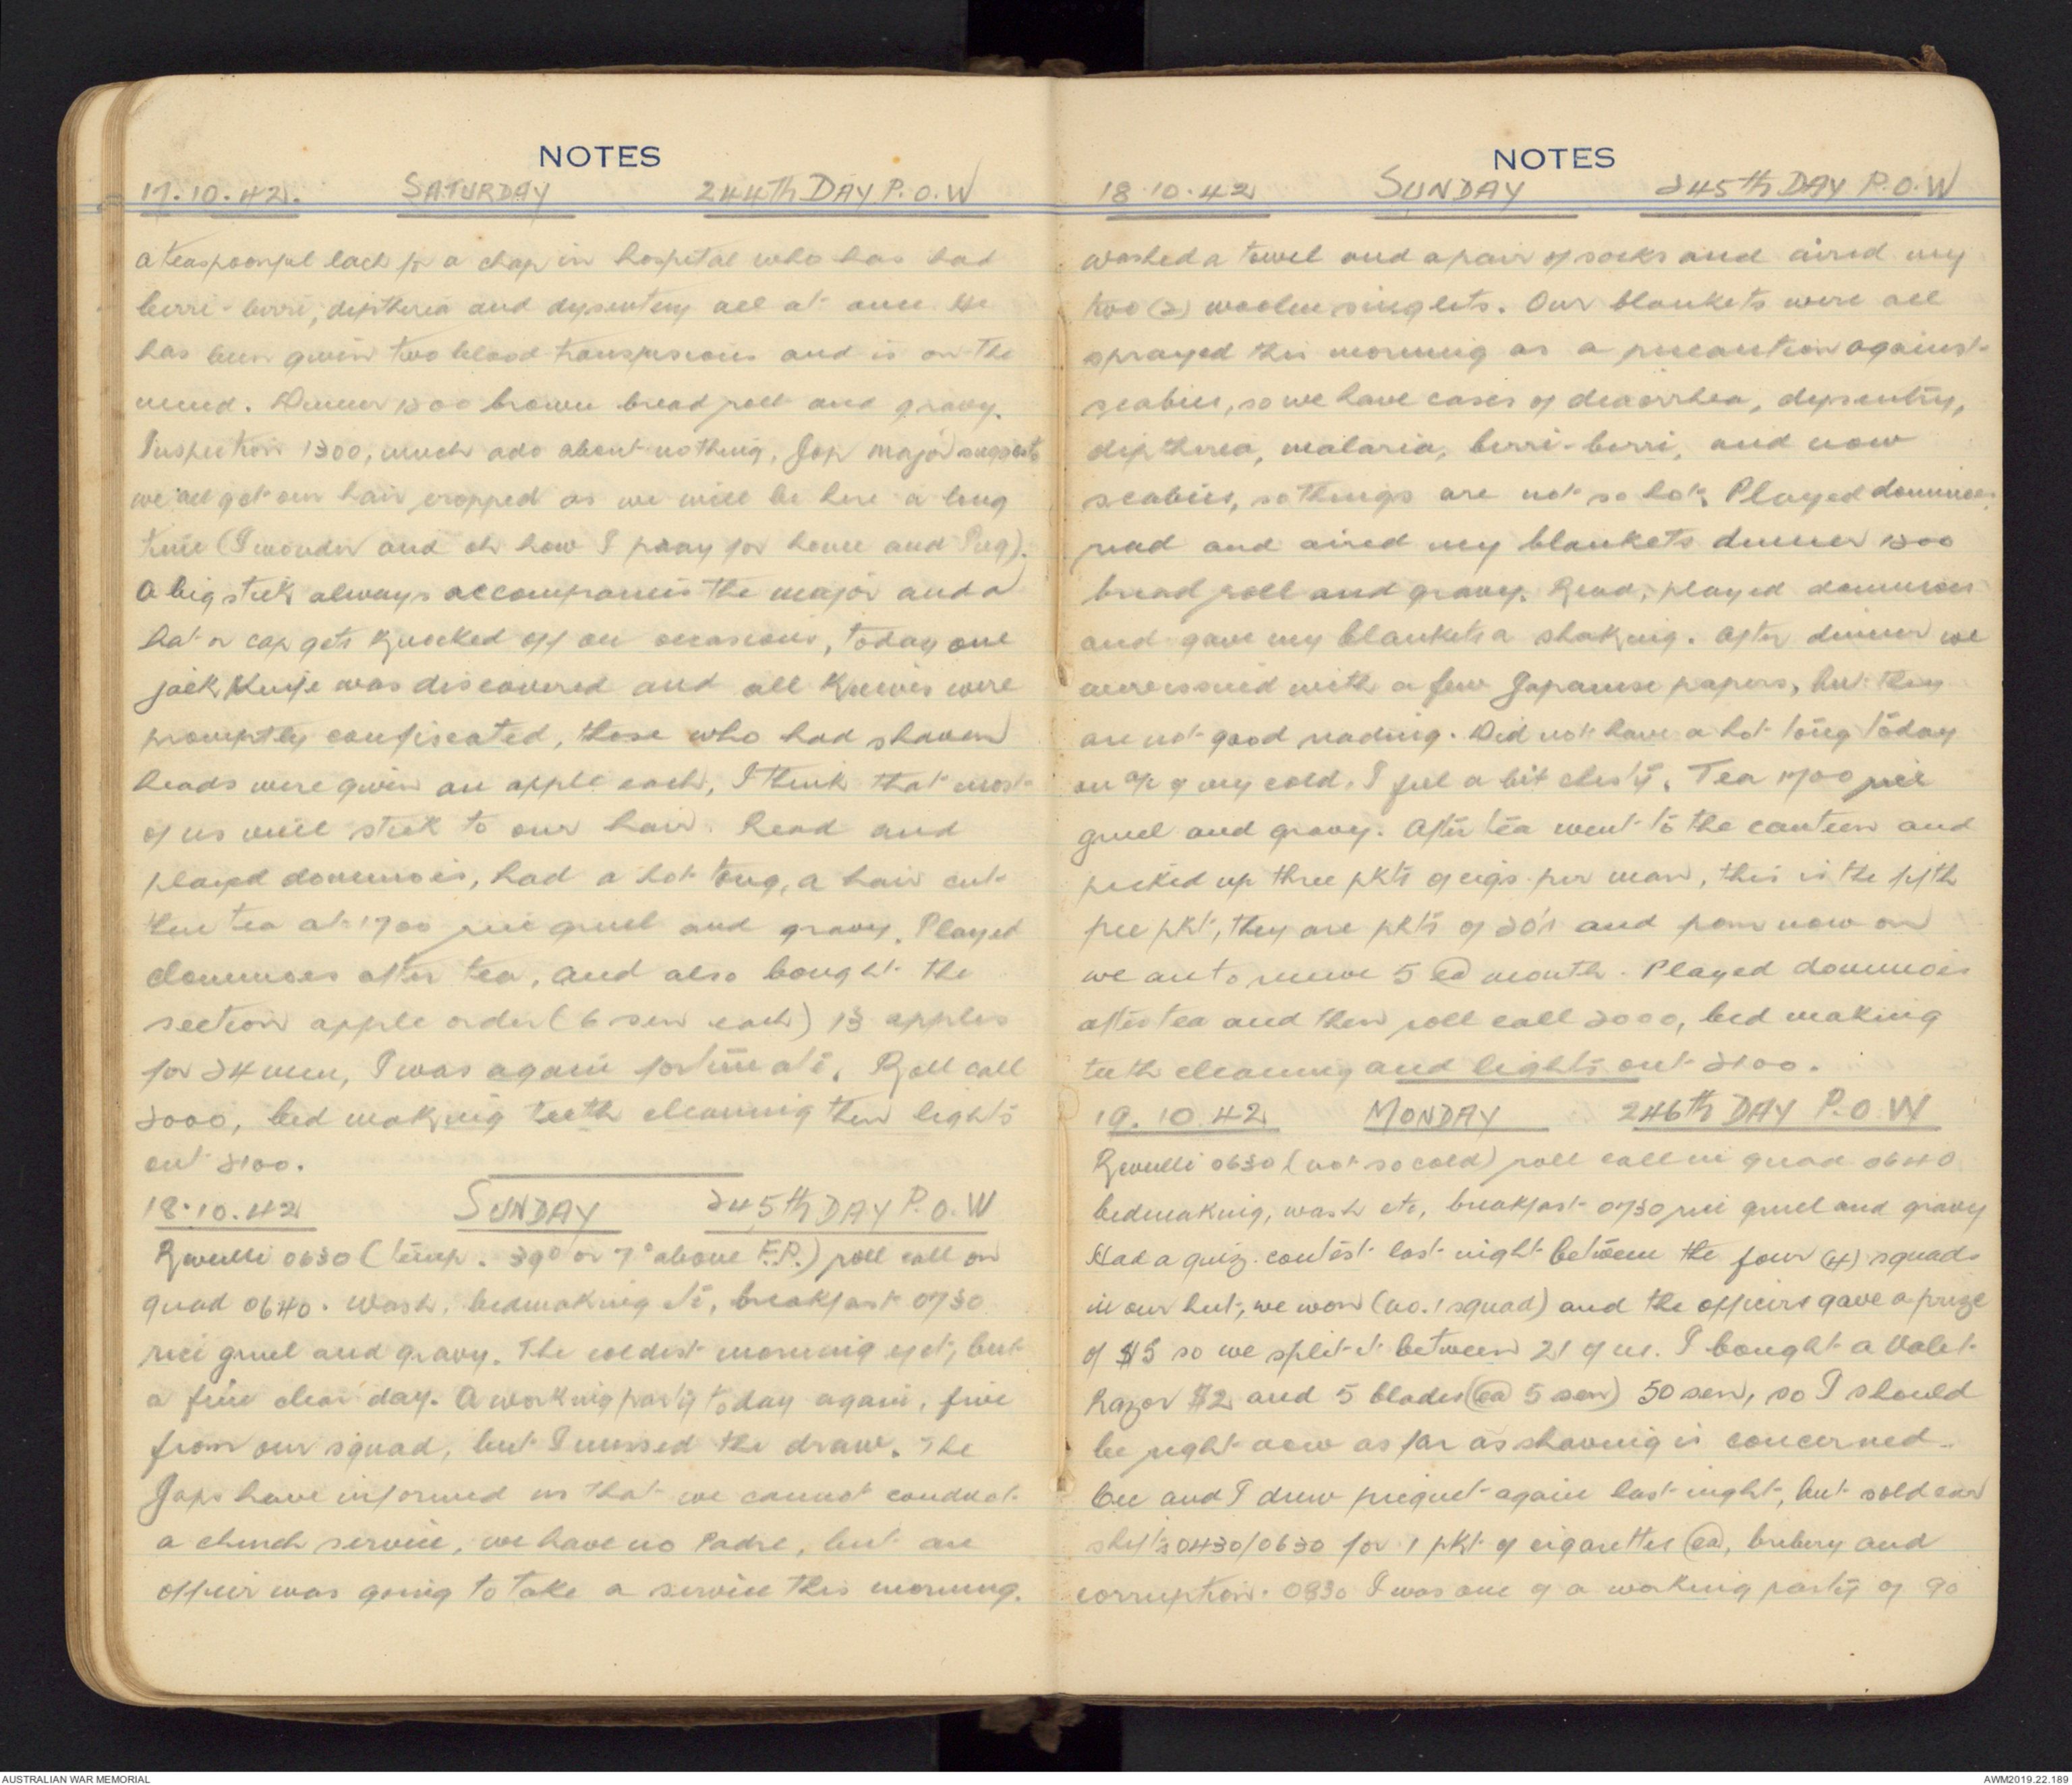 NOTES
17.10.42. SATURDAY 244TH DAY P.O.W
a teaspoonful each for a chap in hospital who has had
berri-berri, diptheria and dysentery all at once. He
has been given two blood transfusions and is on the
mend. Dinner 1200 brown bread roll and gravy.
Inspection 1300, much ado about nothing, Jap major suggests
we all get our hair cropped as we will be here a long
time (I wonder and oh how I pray for home and
A big stick always accompanies the major and a
hat or cap gets knocked off on occasions, today one
jack knife was discovered and all knives were
promptly confiscated, those who had shaven
heads were given an apple each, I think that most
of us will stick to our hair. Read and
played dominoes, had a hot tong, a hair cut
then tea at 1700 rice gruel and gravy. Played
dominoes after tea, and also bought the
section apple order (6 sen each) 13 apples
for 24 men, I was again fortunate. Roll call
2000, bed making teeth cleaning then lights
out 2100.
18.10.42 SUNDAY 245th DAY P.O.W
Reveille 0630 (temp. 39° or 7° above F.P.) roll call on
quad 0640. Wash, bedmaking etc, breakfast 0730
rice gruel and gravy. The coldest morning yet, but
a fine clear day. A working party today again, five
from our squad, but I missed the draw. The
Japs have informed us that we cannot conduct
a church service, we have no Padre, but an
officer was going to take a service this morning.
NOTES
18.10.42 SUNDAY 245th DAY P.O.W
Washed a towel and a pair of socks and aired my
two (2) woolen singlets. Our blankets were all
sprayed this morning as a precaution against
scabies, so we have cases of deaorrhea, dysentry,
diptherea, malaria, berri-berri, and now
scabies, so things are not so hot. Played dominoes,
read and aired my blankets dinner 1200
bread roll and gravy. Read, played dominoes
and gave my blankets a shaking. After dinner we
were issued with a few Japanese papers, but they
are not good reading. Did not have a hot tong today
on a/c of my cold. I feel a bit chesty. Tea 1700 rice
gruel and gravy. After tea went to the canteen and
picked up three pkts of cigs per man, this is the fifth
free pkt, they are pkts of 20's and from now on
we are to receive 5 ea month. Played dominoes
after tea and then roll call 2000, bed making
teeth cleaning and lights out 2100.
19.10.42 MONDAY 246th DAY P.O.W
Reveille 0630 (not so cold) roll call in quad 0640
bedmaking, wash etc, breakfast 0730 rice gruel and gravy
Had a quiz contest last night between the four (4) squads
in our hut, we won (no. 1 squad) and the officers gave a prize
of $5 so we split it between 21 of us. I bought a Valet
Razor $2 and 5 blades (ea 5 sen) 50 sen, so I should
be right now as far as shaving is concerned.
and I drew picquet again last night, but sold our
shifts 0430/0630 for 1 pkt of cigarettes ea, bribery and
corruption. 0830 I was one of a working party of 90
AUSTRALIAN WAR MEMORIAL
AWM2019.22.189